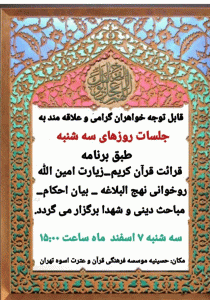 قابل توجه خواهران گرامی و علاقه مند به
جلسات روزهای سه شنبه
طبق برنامه
قرائت قرآن کریم_زیارت امین الله
روخوانی نهج البلاغه _ بیان احکام_
مباحث دینی و شهدا برگزار می گردد.
سه شنبه ۷ اسفند ماه ساعت ۱۵:۰۰
مکان: حسینیه موسسه فرهنگی قرآن و عترت اسوه تهران